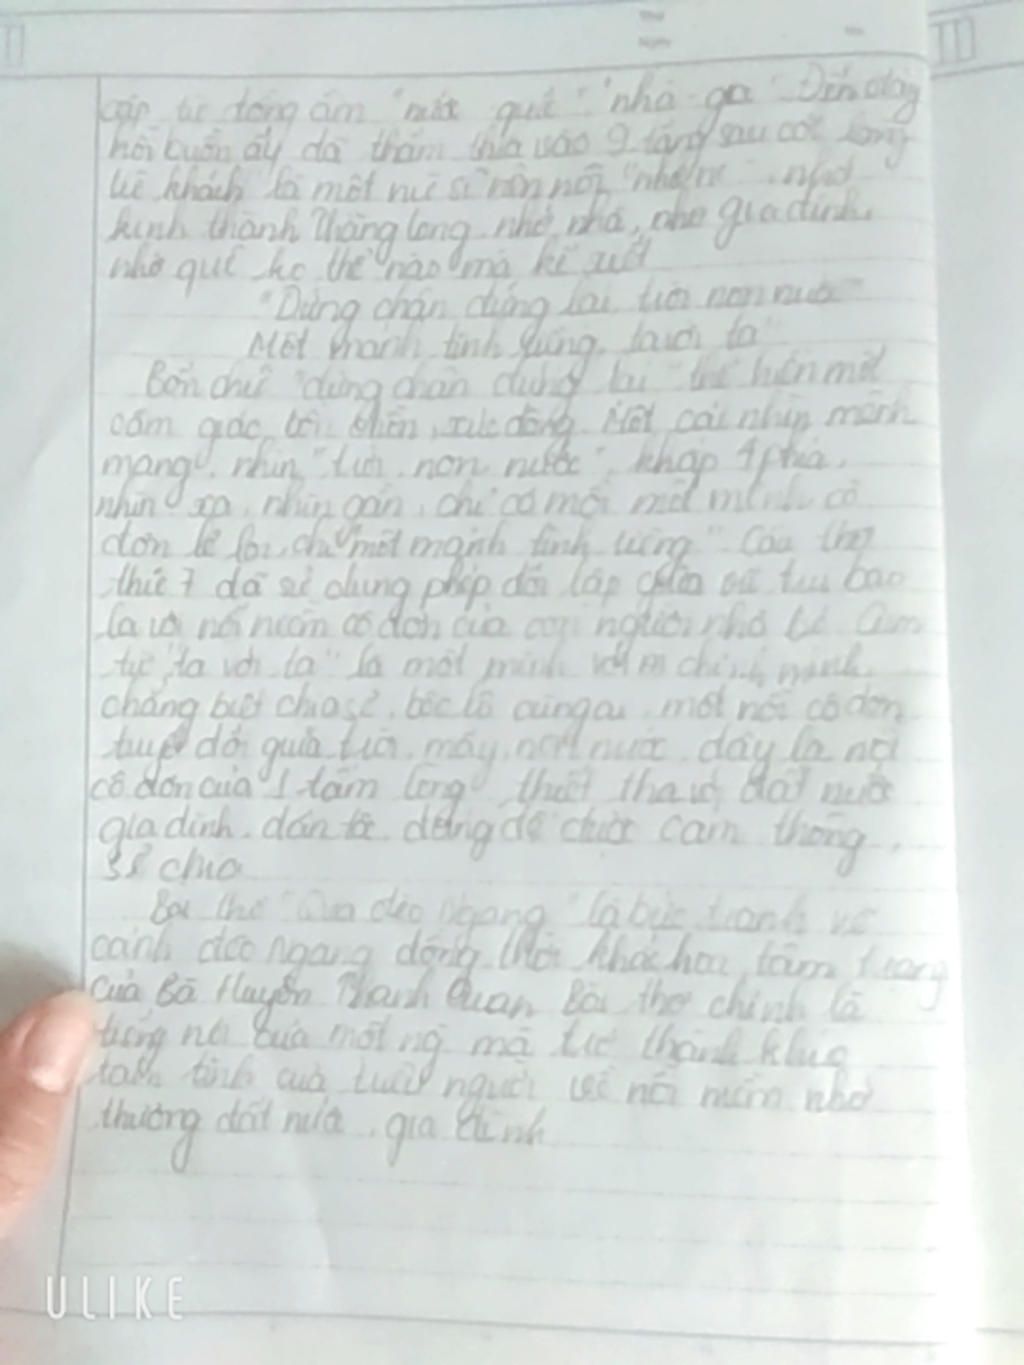 cặp từ đồng âm "nước quốc" "nhà - gia" Đến đây
nỗi buồn ấy đã thấm thía vào 9 tầng sau cõi lòng
lữ khách là một nữ sĩ nên nỗi "nhớ nc", nhớ
kinh thành Thăng long, nhớ nhà, nhớ gia đình,
nhớ quê ko thể nào mà kể xiết
"Dừng chân đứng lại trời non nước
Một mảnh tình riêng, ta với ta"
Bốn chữ "dừng chân đứng lại" thể hiện một
cảm giác bồn chồn, xúc động. Một cái nhìn mênh
mang, nhìn "trời, non, nước", khắp 4 phía,
nhìn xa, nhìn gần, chỉ có mỗi một mình cô
đơn lẻ loi, chỉ "một mảnh tình riêng". Câu thơ
thứ 7 đã sử dụng phép đối lập giữa vũ trụ bao
la với nỗi niềm cô đơn của con người nhỏ bé. Cụm
từ "ta với ta" là một mình với chính mình,
chẳng biết chia sẻ, bộc lộ cùng ai, một nỗi cô đơn
tuyệt đối giữa trời, mây, non nước, đây là nỗi
cô đơn của 1 tấm lòng thiết tha với đất nước
gia đình, dân tộc đáng để được cảm thông,
sẻ chia
Bài thơ "Qua đèo Ngang" là bức tranh về
cảnh đèo Ngang đồng thời khắc họa tâm trạng
của Bà Huyện Thanh Quan Bài thơ chính là
tiếng nói của một ng mà trở thành khúc
tâm tình của triệu người về nỗi niềm nhớ
thương đất nước, gia đình
ULIKE